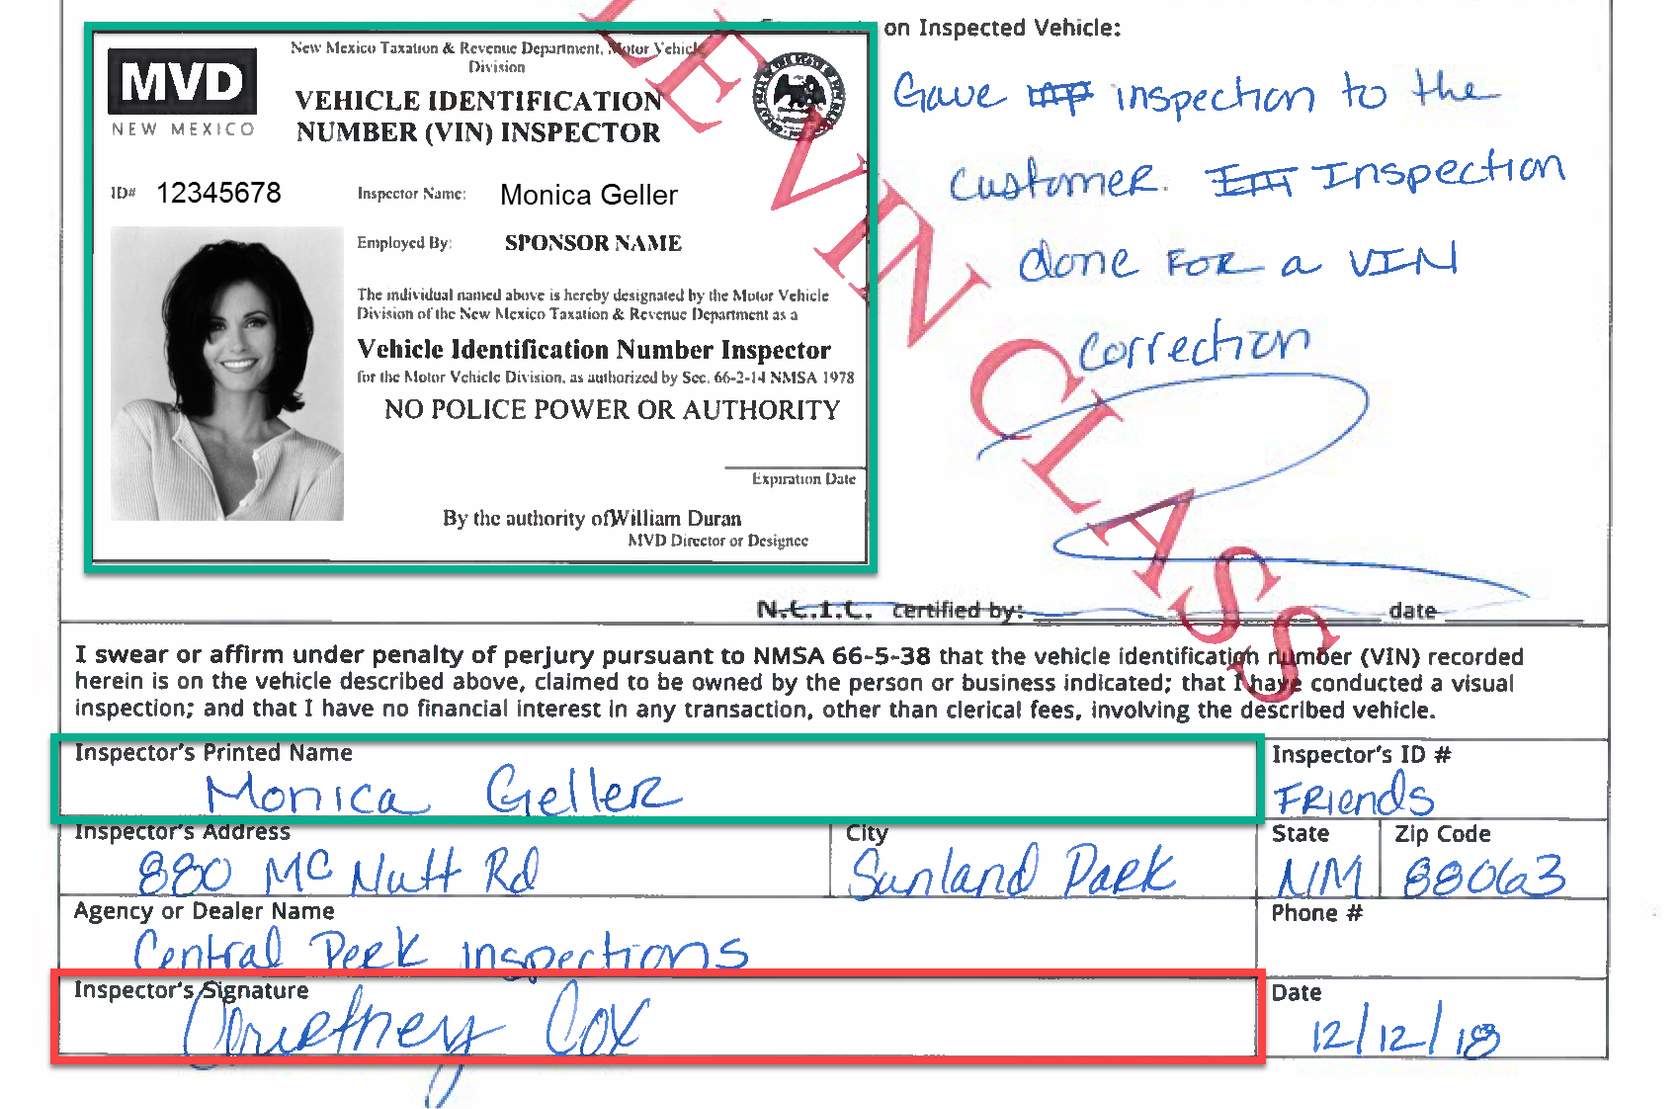 on Inspected Vehicle:
MVD
NEW MEXICO
New Mexico Taxation & Revenue Department, Motor Vehicle
Division
VEHICLE IDENTIFICATION
NUMBER (VIN) INSPECTOR
ID# 12345678 Inspector Name: Monica Geller
Employed By: SPONSOR NAME
The individual named above is hereby designated by the Motor Vehicle
Division of the New Mexico Taxation & Revenue Department as a
Vehicle Identification Number Inspector
for the Motor Vehicle Division, as authorized by Sec. 66-2-14 NMSA 1978
NO POLICE POWER OR AUTHORITY
Expiration Date
By the authority of William Duran
MVD Director or Designee
Gave inspection to the
customer. Inspection
done for a VIN
correction
LE VIN CLASS
N.C.I.C. certified by: date
I swear or affirm under penalty of perjury pursuant to NMSA 66-5-38 that the vehicle identification number (VIN) recorded
herein is on the vehicle described above, claimed to be owned by the person or business indicated; that I have conducted a visual
inspection; and that I have no financial interest in any transaction, other than clerical fees, involving the described vehicle.
Inspector's Printed Name Inspector's ID #
Monica Geller Friends
Inspector's Address City State Zip Code
880 McNutt Rd Sunland Park NM 88063
Agency or Dealer Name Phone #
Central Perk inspections
Inspector's Signature Date
Courtney Cox 12/12/18